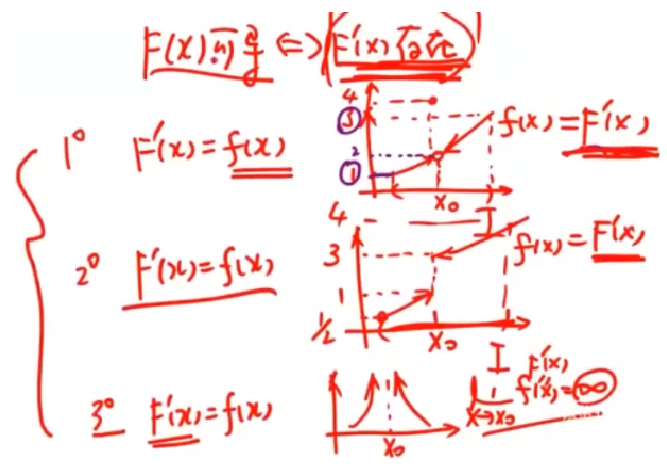 F(x)可导 ⇔ F'(x)存在
1° F'(x)=f(x)
4
3
2
1
x₀
f(x)=F'(x)
2° F'(x)=f(x)
4
3
1
1/2
x₀
I
f(x)=F'(x)
3° F'(x)=f(x)
x₀
I
F'(x)
f'(x)=∞
x→x₀